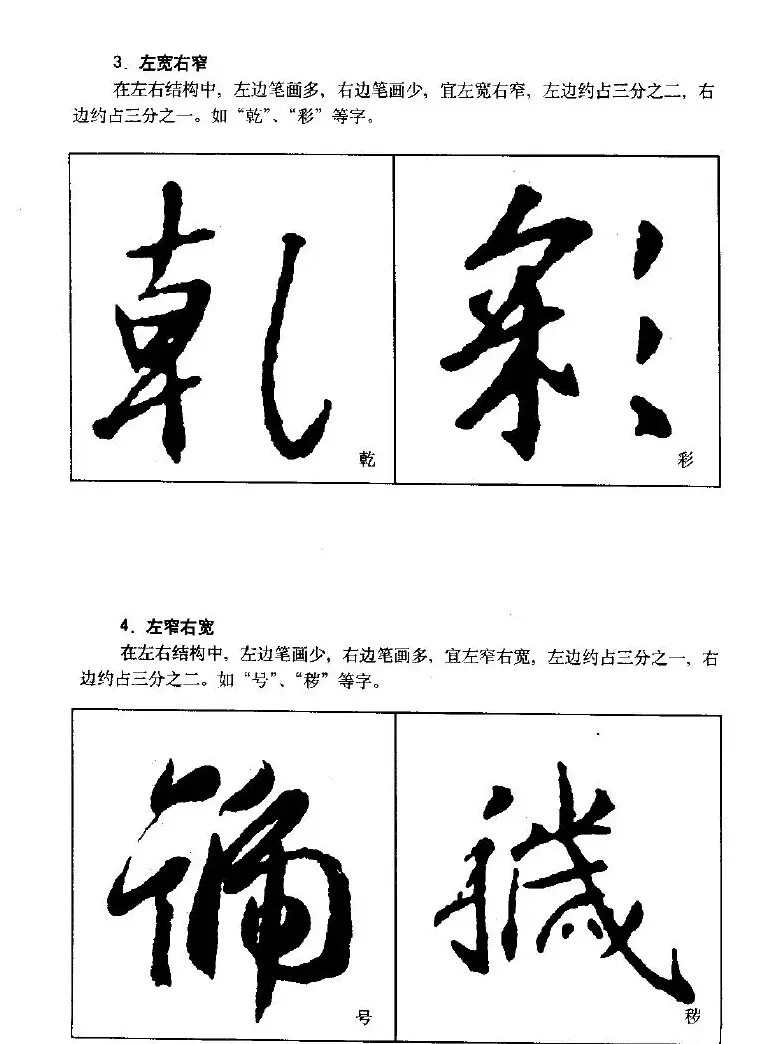 3. 左宽右窄
在左右结构中，左边笔画多，右边笔画少，宜左宽右窄，左边约占三分之二，右
边约占三分之一。如“乾”、“彩”等字。
乾 彩
乾 彩
4. 左窄右宽
在左右结构中，左边笔画少，右边笔画多，宜左窄右宽，左边约占三分之一，右
边约占三分之二。如“号”、“秽”等字。
號 穢
号 秽